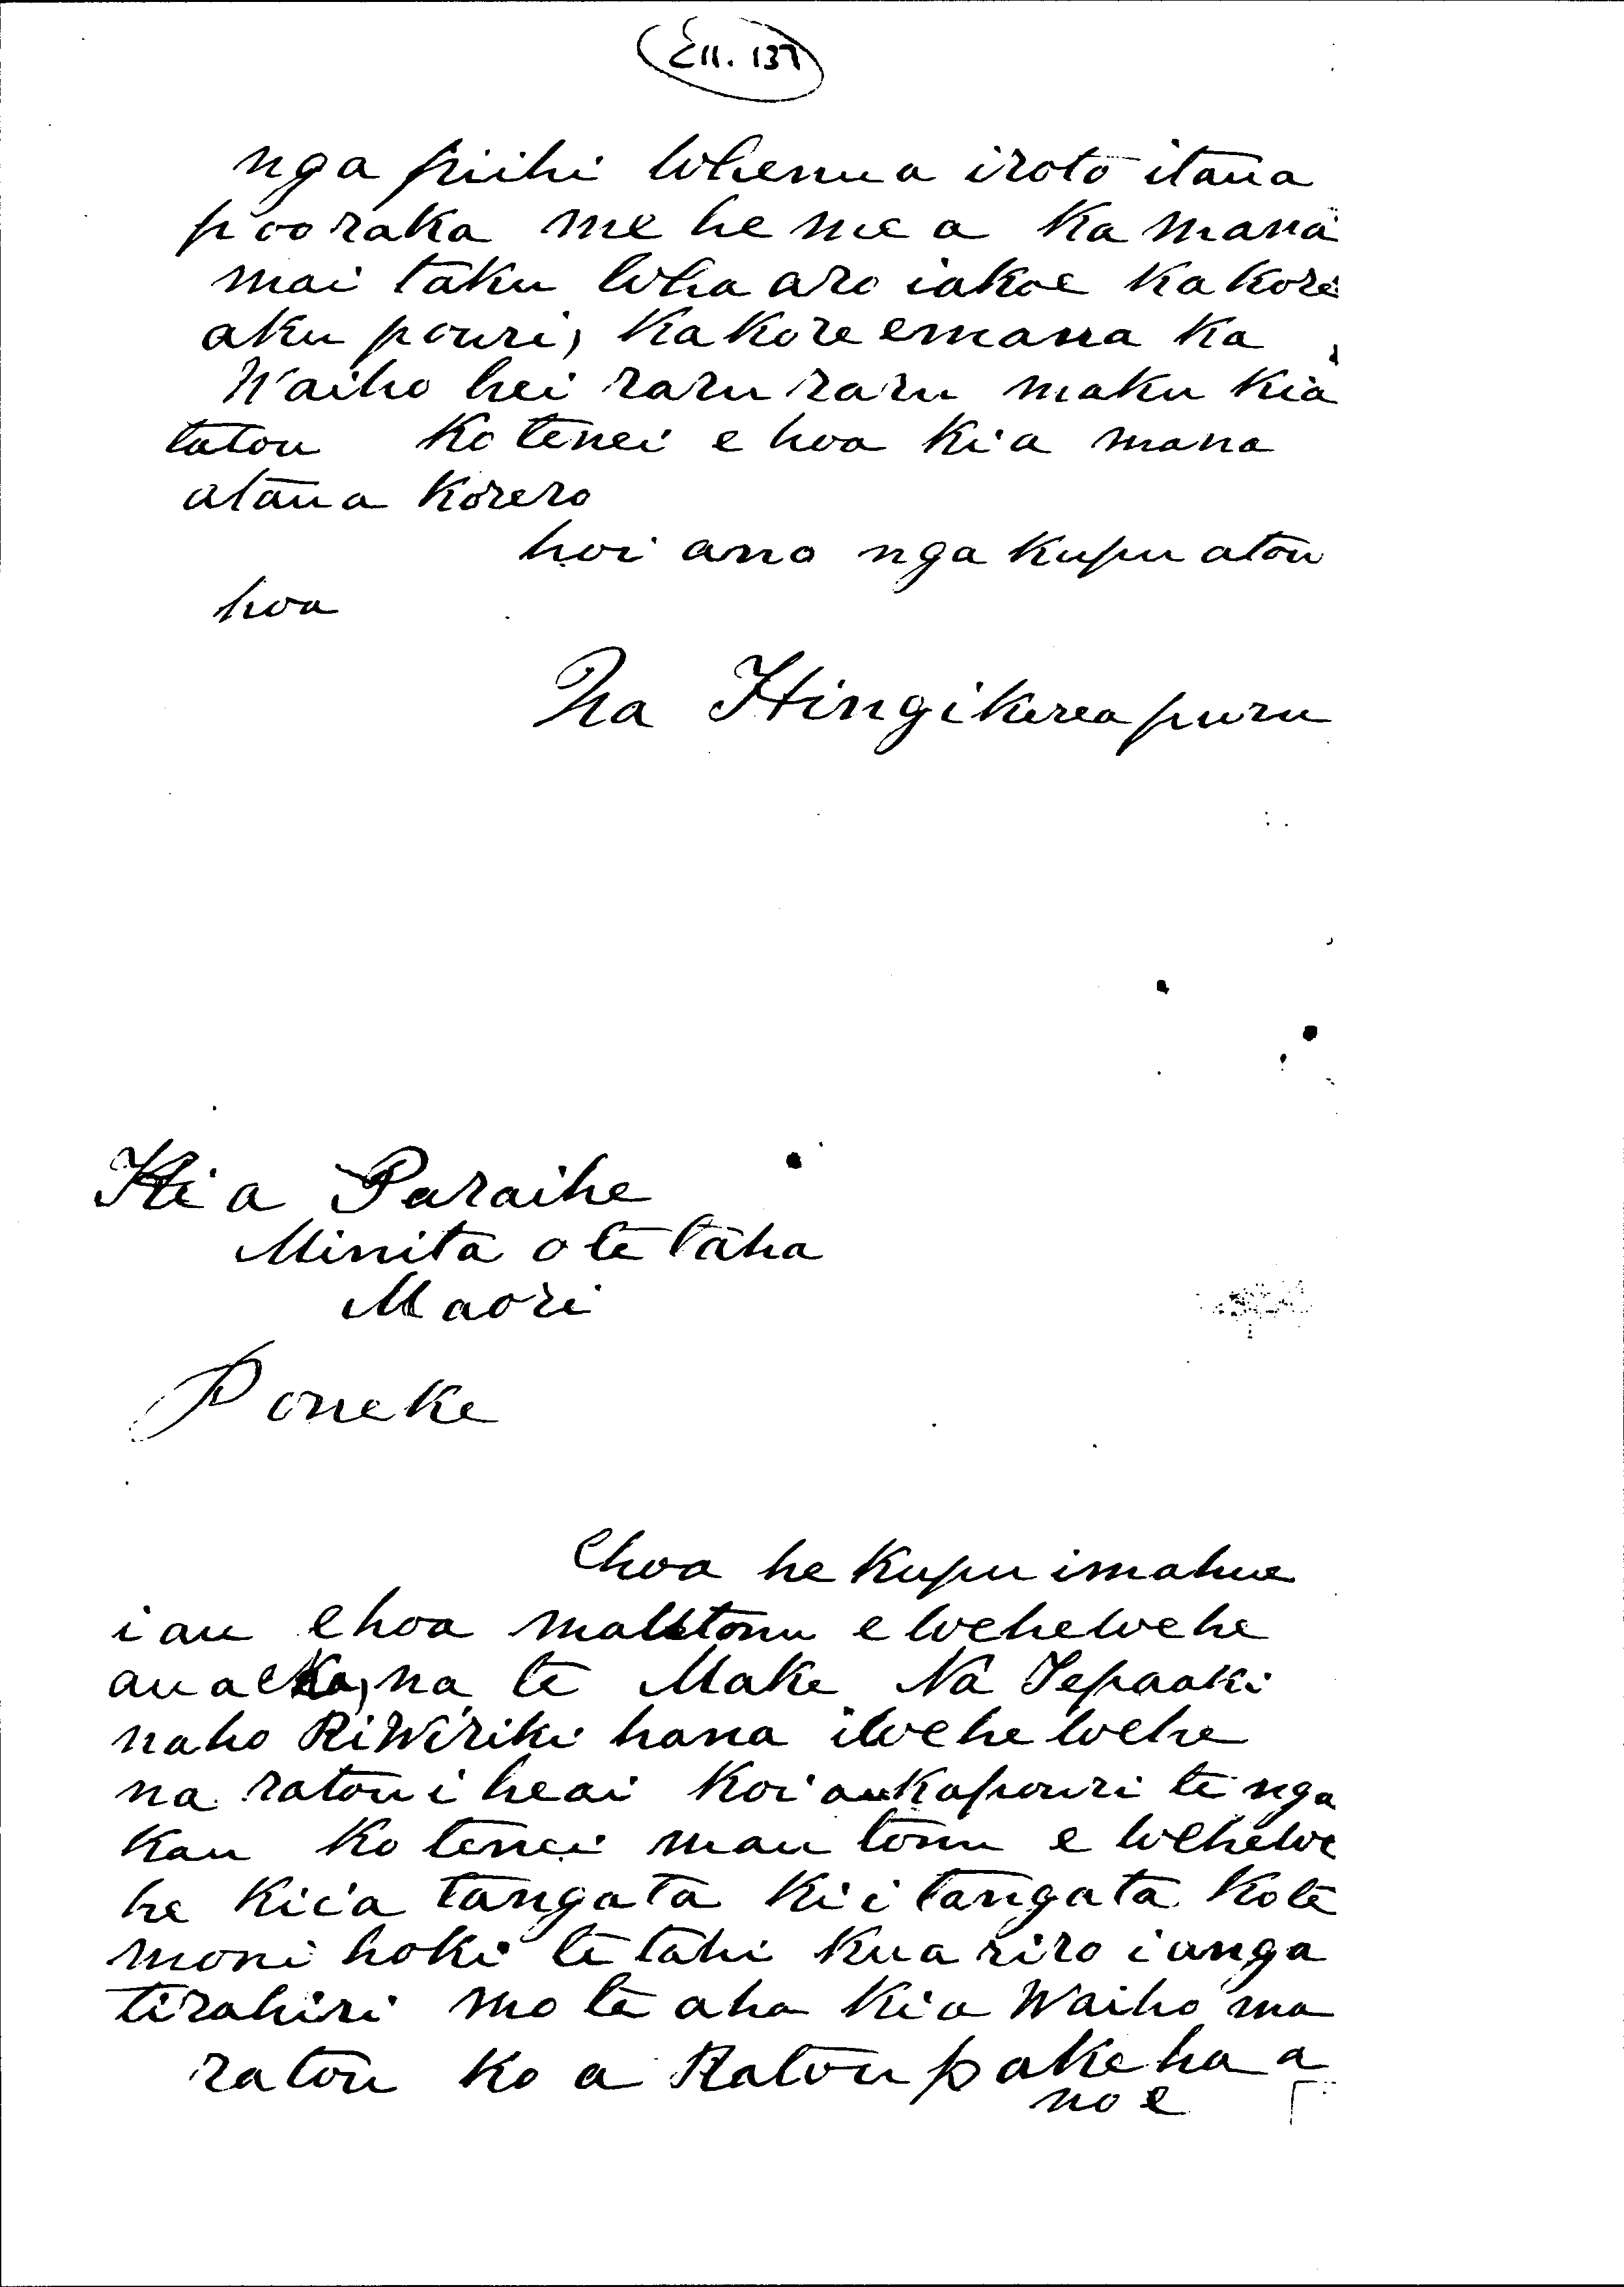 E11. 137
nga piihi whenua iroto itaua
pooraka me he mea Ka mana
mai taku whaaro iakoe Ka Kore
aku pouri, Ka Kore emana Ka
Waiho hei raru raru maku Kia
tatou Ko tenei e hoa Kia mana
ataua Korero
hoi ano nga Kupu atou
hoa
Na Hingikereapuru
Kia Paraihe
Minita o te taha
Maori
Poneke
Ehoa he Kupu imahue
i au ehoa tonu e wehewehe
na te Make Na Tepaaki
naho RiWiriki hana iwehe wehe
na ratou i heai Koi au Kapouri te nga
Kau Ko tenei mau tonu e wehewe
he Kiia tangata Ki i tangata Kote
moni hoki te tahi Kua riro i anga
tirahiri mo te aha Kia Waiho ma
ratou Ko a Ratou pakeha a
no e